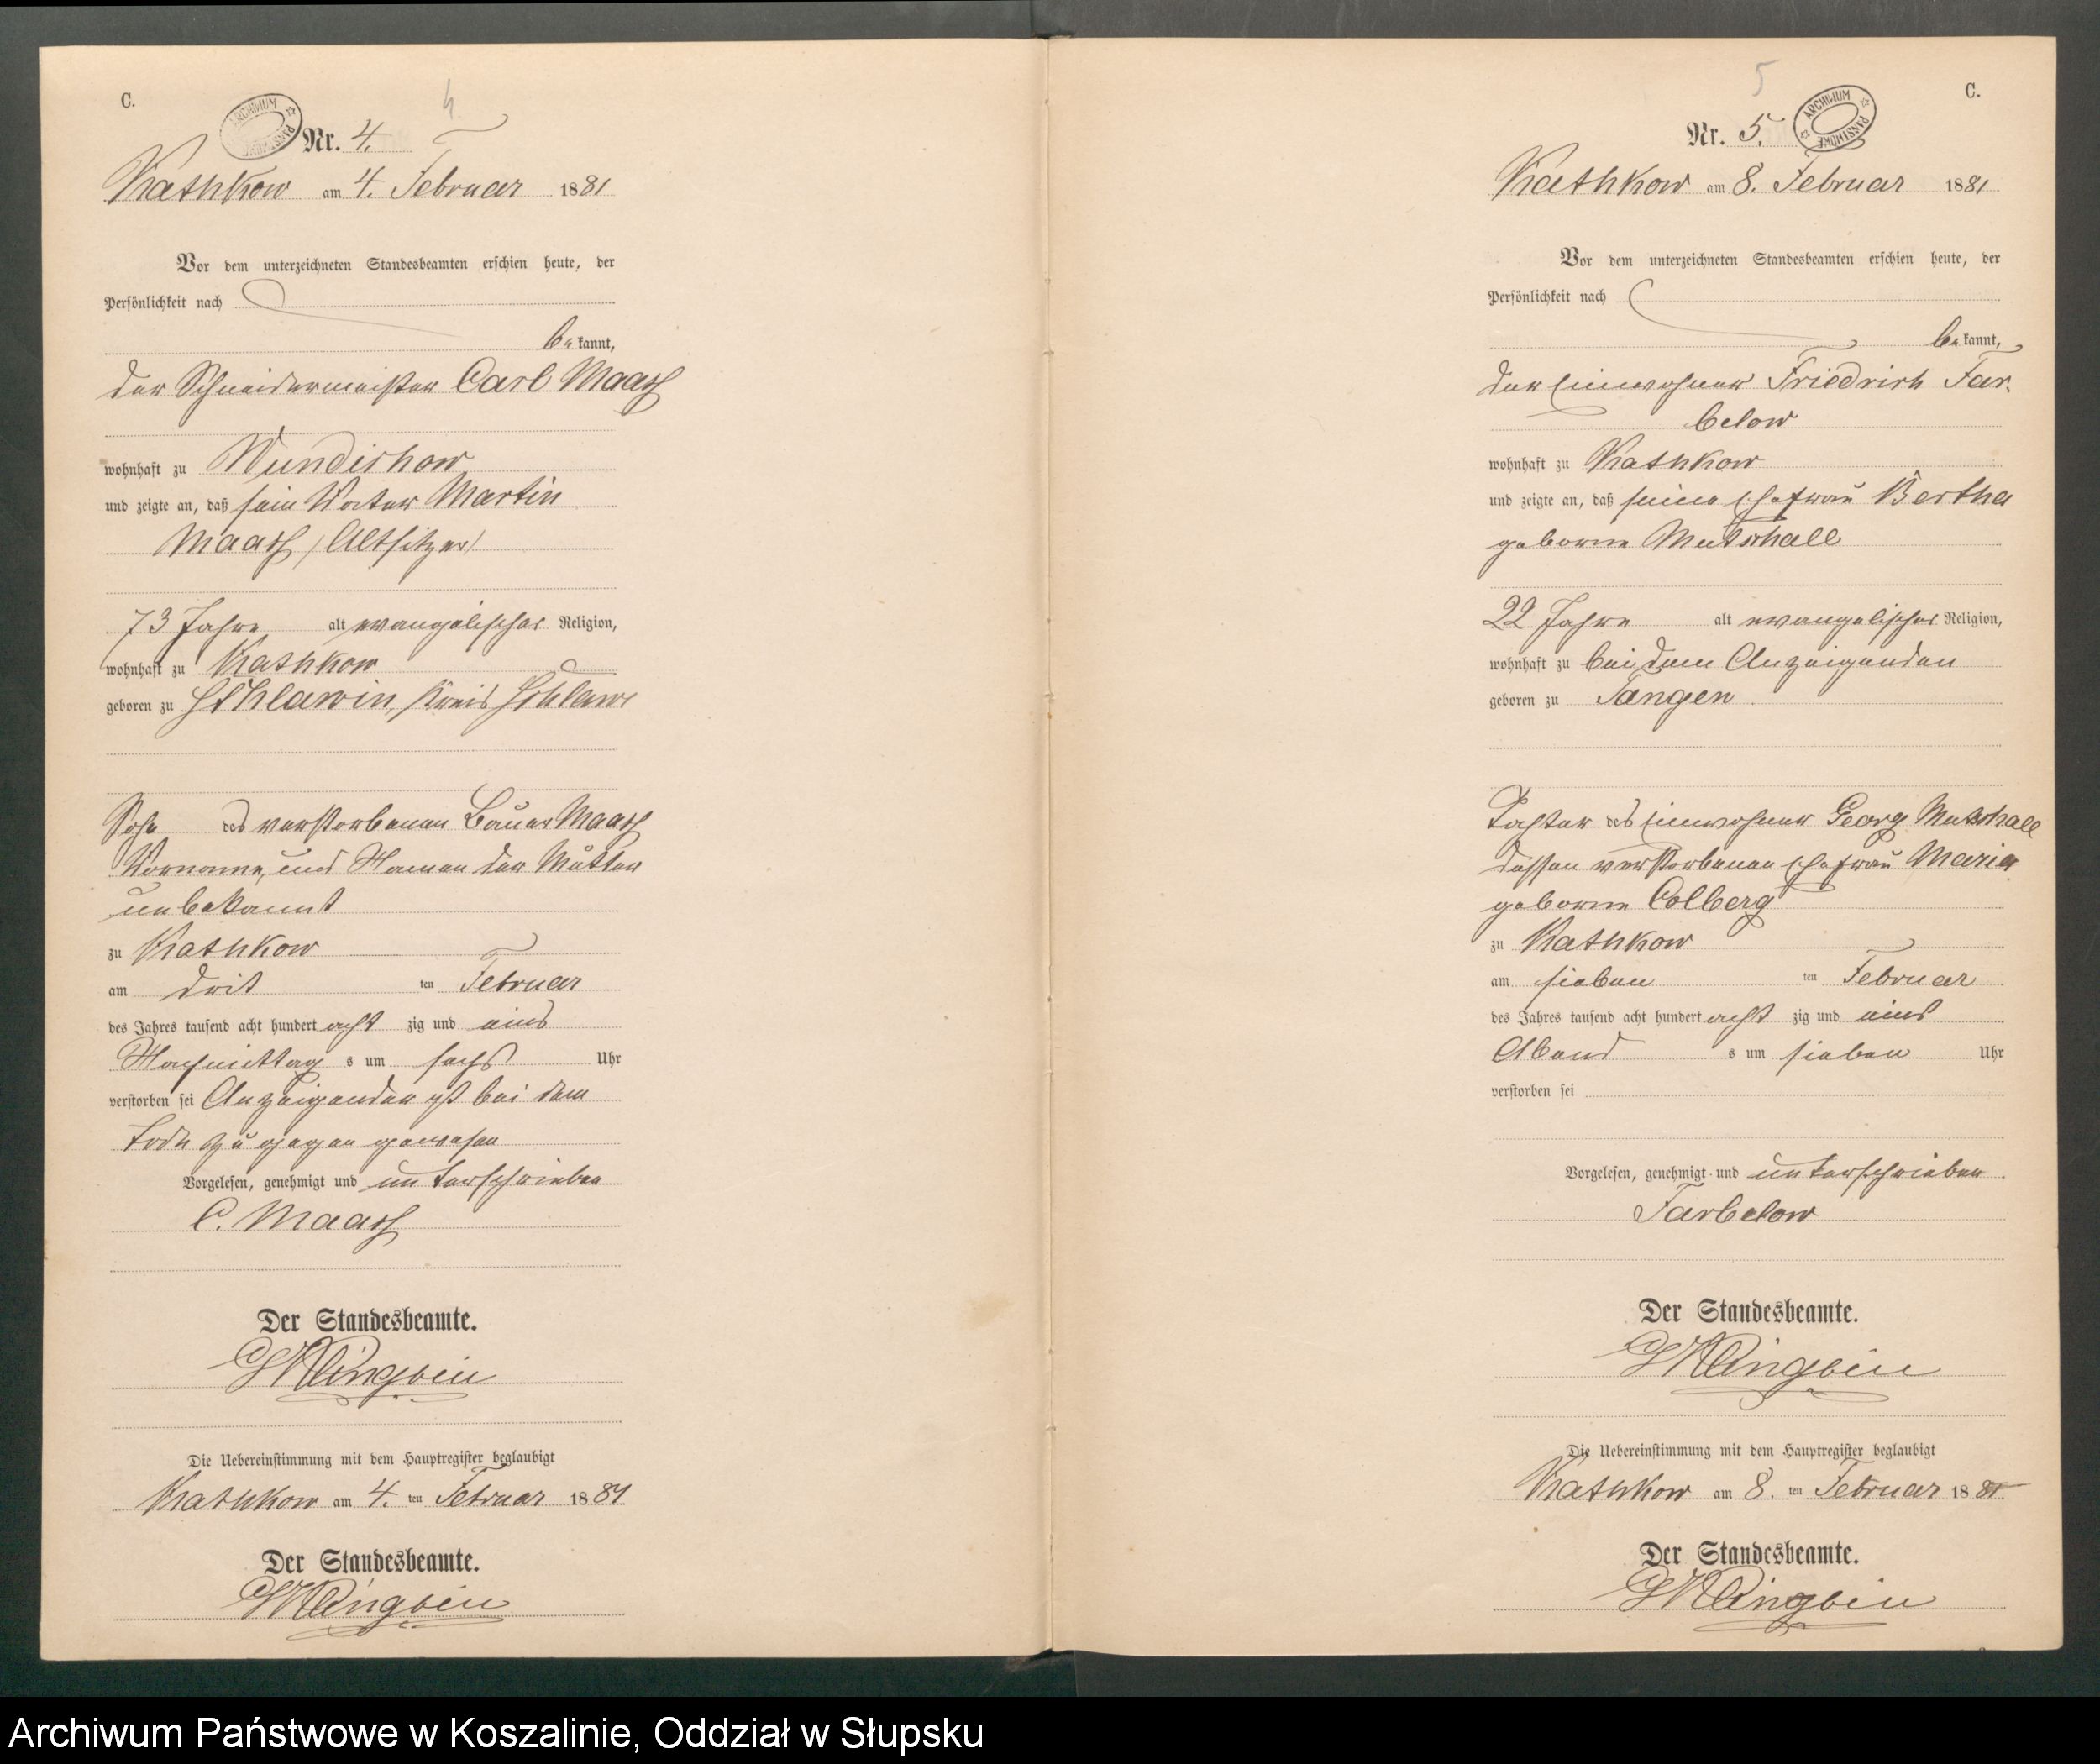 C.
4
ARCHIWUM PAŃSTWOWE
Nr. 4.
Kathkow am 4. Februar 1881
Vor dem unterzeichneten Standesbeamten erschien heute, der
Persönlichkeit nach
be kannt,
der Schneidermeister Carl Maass
wohnhaft zu Wundichow
und zeigte an, daß sein Vater Martin
Maass, (Altsitzer)
73 Jahre alt evangelischer Religion,
wohnhaft zu Kathkow
geboren zu Schlawin, Kreis Schlawe
Sohn des verstorbenen Bauer Maass
Vorname, und Namen der Mutter
unbekannt
zu Kathkow
am drit ten Februar
des Jahres tausend acht hundert acht zig und eins
Nachmittag s um sechs Uhr
verstorben sei Anzeigender ist bei dem
Tode zu gegen gewesen
Vorgelesen, genehmigt und unterschrieben
C. Maass
Der Standesbeamte.
Die Uebereinstimmung mit dem Hauptregister beglaubigt
Kathkow am 4. ten Februar 1881
Der Standesbeamte.
5
C.
Nr. 5.
ARCHIWUM PAŃSTWOWE
Kathkow am 8. Februar 1881
Vor dem unterzeichneten Standesbeamten erschien heute, der
Persönlichkeit nach
be kannt,
der Einwohner Friedrich Far-
below
wohnhaft zu Kathkow
und zeigte an, daß seine Ehefrau Bertha
geborne Mutschall
22 Jahre alt evangelischer Religion,
wohnhaft zu bei dem Anzeigenden
geboren zu Tangen
Tochter des Einwohner Georg Mutschall
dessen verstorbenen Ehefrau Maria
geborne Colberg
zu Kathkow
am sieben ten Februar
des Jahres tausend acht hundert acht zig und eins
Abend s um sieben Uhr
verstorben sei
Vorgelesen, genehmigt und unterschrieben
Farbelow
Der Standesbeamte.
Die Uebereinstimmung mit dem Hauptregister beglaubigt
Kathkow am 8. ten Februar 1881
Der Standesbeamte.
Archiwum Państwowe w Koszalinie, Oddział w Słupsku